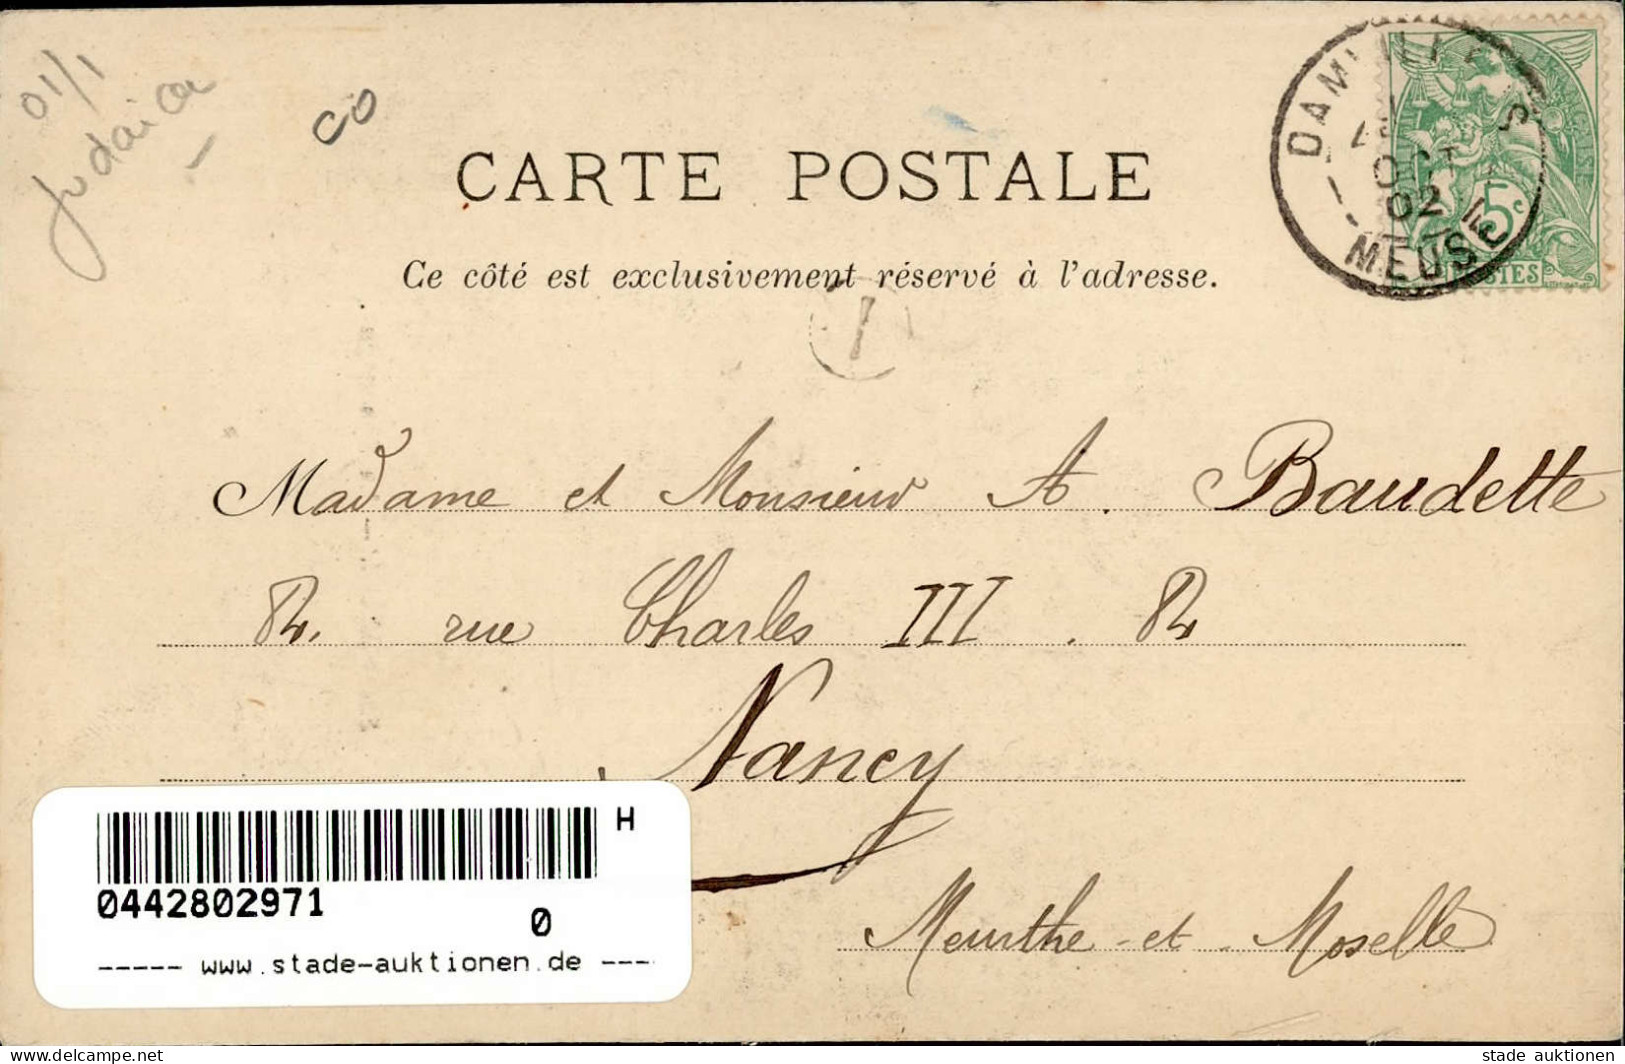 01/1
Judaica
CO
DAMVILLERS
OCT
02
MEUSE
5c
POSTES
CARTE POSTALE
Ce côté est exclusivement réservé à l'adresse.
Madame et Monsieur A. Baudette
82. rue Charles III. 82
Nancy
Meurthe-et-Moselle
H
0442802971
0
----- www.stade-auktionen.de ----
stade auktionen